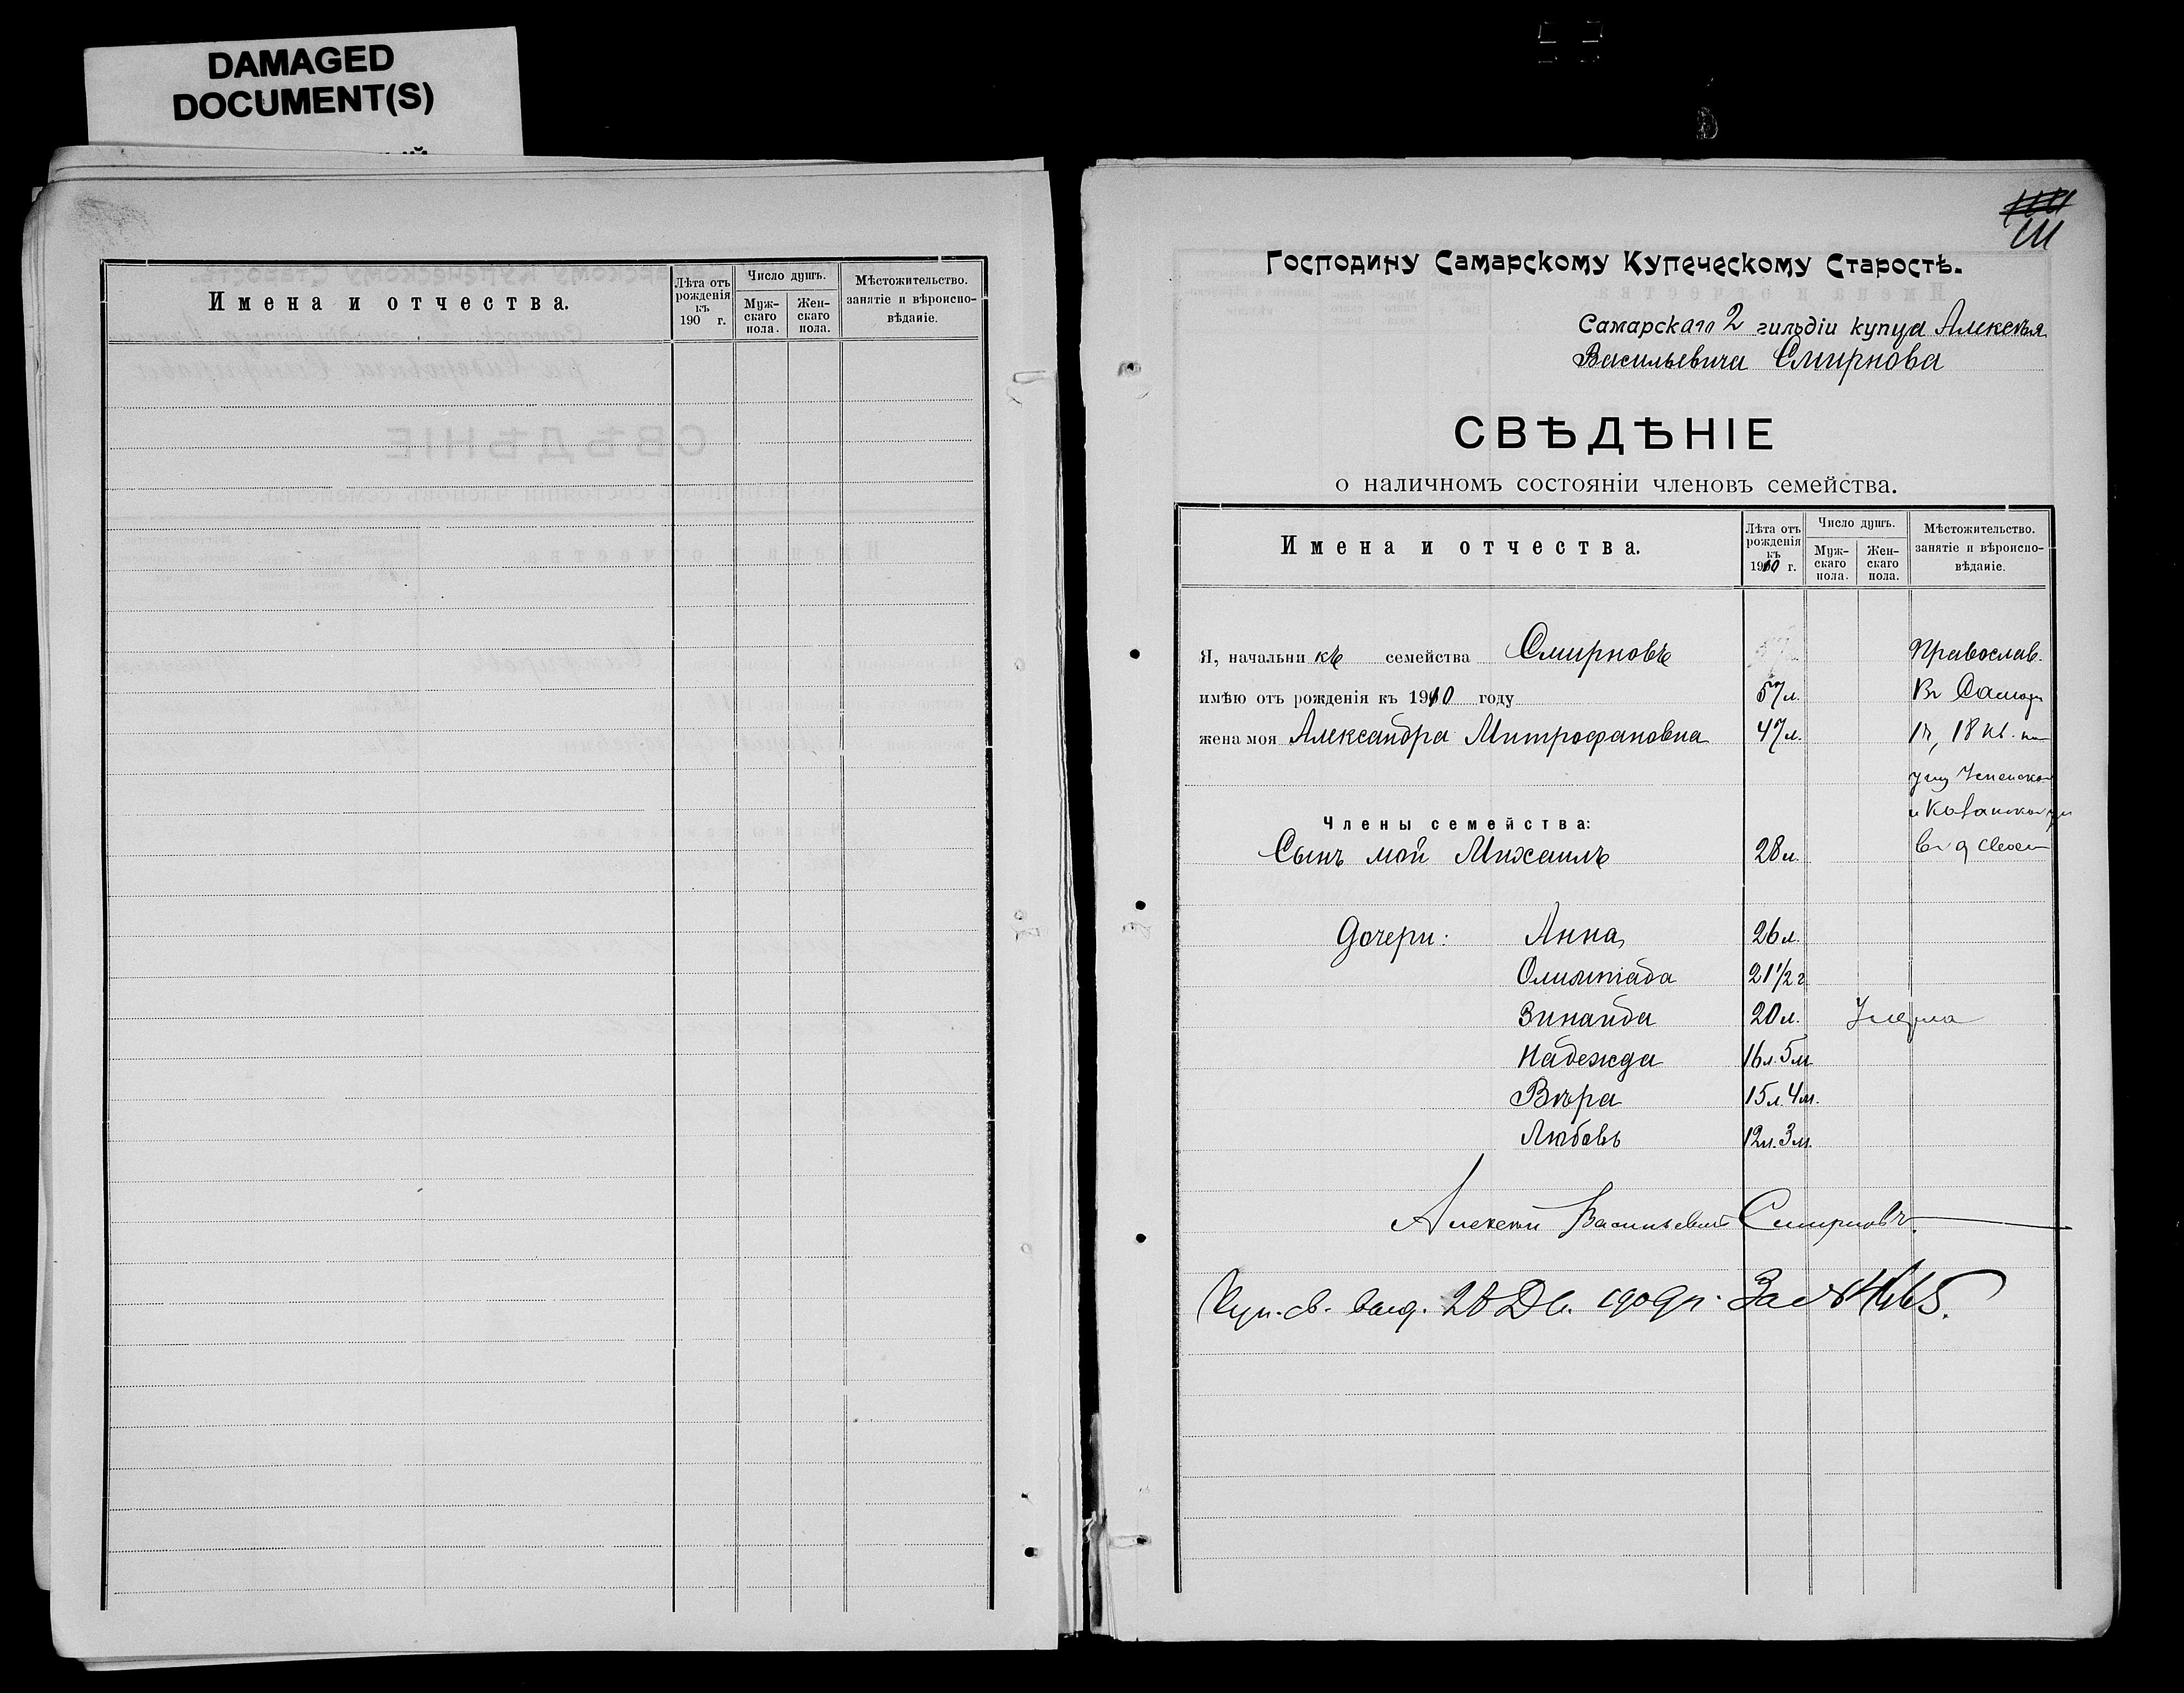 DAMAGED
DOCUMENT(S)
Имена и отчества.
Лѣта отъ рожденія къ 190 г.
Число душъ.
Муж-скаго пола.
Жен-скаго пола.
Мѣстожительство. занятіе и вѣроиспо-вѣданіе.
111
Господину Самарскому Купеческому Старостѣ.
Самарскаго 2 гильдіи купца Алексѣя
Васильевича Смирнова
СВѢДѢНІЕ
о наличномъ состояніи членовъ семейства.
Имена и отчества.
Лѣта отъ рожденія къ 1910 г.
Число душъ.
Муж-скаго пола.
Жен-скаго пола.
Мѣстожительство. занятіе и вѣроиспо-вѣданіе.
Я, начальникъ семейства Смирновъ Православ.
имѣю отъ рожденія къ 1910 году 57 л. Въ Самарѣ
жена моя Александра Митрофановна 47 л. 18 кв.
и Казанской
Члены семейства:
Сынъ мой Михаилъ 28 л.
Дочери: Анна, 26 л.
Олимпіада 21 1/2 г.
Зинаида 20 л. Умерла
Надежда 16 л. 5 м.
Вѣра 15 л. 4 м.
Любовь 12 л. 3 м.
Алексей Васильевичъ Смирновъ
Куп. св. выд. 28 Дек. 1909 г. За №